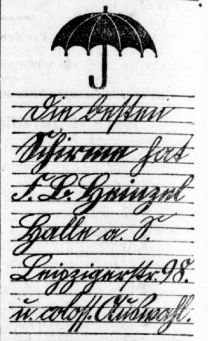 Die besten
Schirme hat
F. B. Heinzel
Halle a S.
Leipzigerstr. 98.
u. coloss. Auswahl.